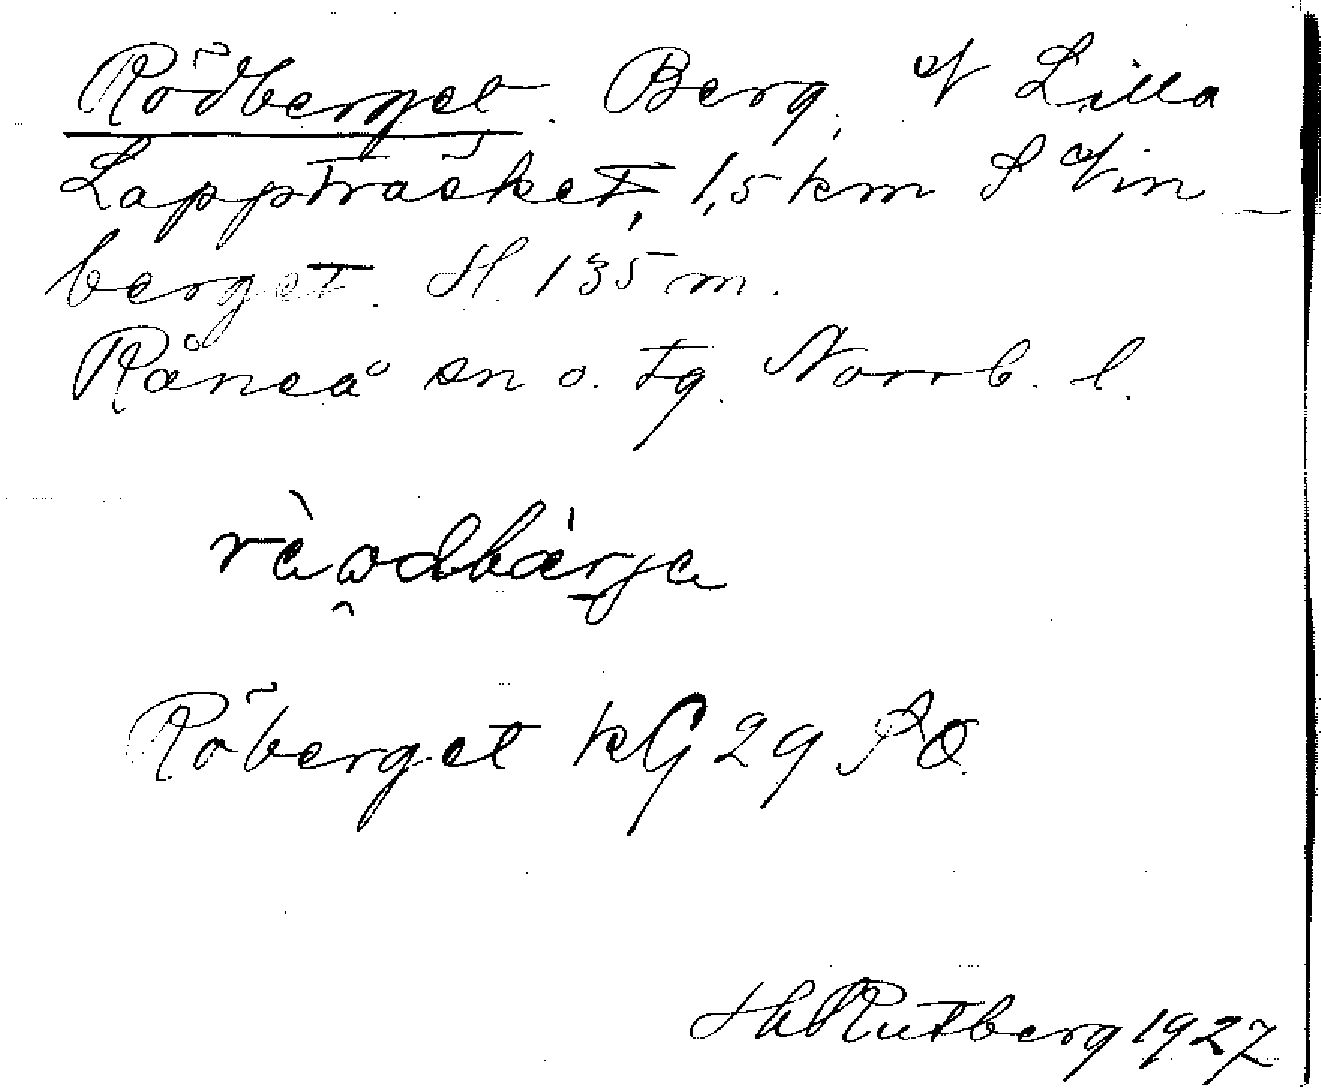 Rödberget. Berg, V Lilla
Lappträsket, 1,5 km S Vin-
berget. H. 135 m.
Råneå sn o. tg. Norrb. l.
Röberget KG 29 SO
Hh Rutberg 1927